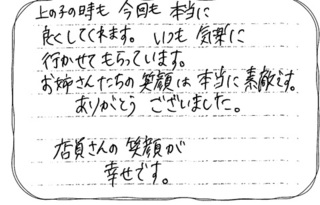 上の子の時も 今回も 本当に
良くしてくれます。 いつも 気楽に
行かせて もらっています。
お姉さんたちの 笑顔は 本当に 素敵です。
ありがとう ございました。
店員さんの 笑顔が
幸せです。